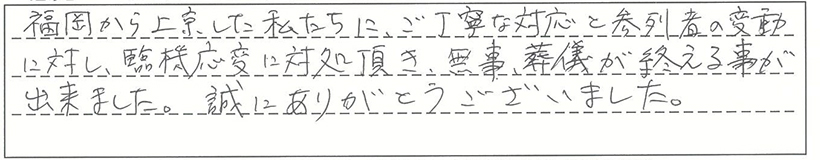 福岡から上京した私たちに、ご丁寧な対応と参列者の変動
に対し、臨機応変に対処頂き、無事、葬儀が終える事が
出来ました。誠にありがとうございました。